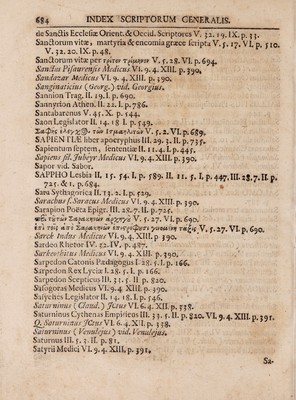 684 INDEX SCRIPTORUM GENERALIS.
de Sanctis Ecclesiæ Orient. & Occid. Scriptores V. 32. 19. IX. p. 33.
Sanctorum vitæ, martyria & encomia græce scripta V. 5. 17. VI. p. 510.
V. 32. 20. IX. p. 48.
Sanctorum vitæ per τρίτον τρίμηνον V. 5. 28. VI. p. 694.
Sanctus Pisaurensis Medicus VI. 9. 4. XIII. p. 390.
Sandazar Medicus VI. 9. 4. XIII. p. 390.
Sanginaticius (Georg.) vid. Georgius.
Sannion Trag. II. 19. I. p. 690.
Sannyrion Athen. II. 22. I. p. 786.
Santabarenus V. 45. X. p. 544.
Saon Legislator II. 14. 18. I. p. 549.
V. 5. 2. VI. p. 689.
SAPIENTIÆ liber apocryphus III. 29. 2. II. p. 735.
Sapientum septem, sententiæ II. 11. 4. I. p. 445.
Sapiens fil. Jubeyr Medicus VI. 9. 4. XIII. p. 390.
Sapor vid. Sabor.
SAPPHO Lesbia II. 15. 54. I. p. 589. II. 11. 5. I. p. 447. III. 28. 7. II. p.
725. & 1. p. 684.
Sara Sythagorica II. 13. 2. I. p. 529.
Sarachus s. Saracus Medicus VI. 9. 4. XIII. p. 390.
Sarapion Poëta Epigr. III. 28. 7. II. p. 725.
V. 5. 27. VI. p. 690.
V. 5. 27. VI. p. 690.
Sarck Indus Medicus VI. 9. 4. XIII. p. 390.
Sardeo Rhetor IV. 32. IV. p. 487.
Medicus VI. 9. 4. XIII. p. 390.
Sarpedon Catonis Pædagogus I. 28. 5. I. p. 166.
Sarpedon Rex Lyciæ I. 28. 5. I. p. 166.
Sarpedon Scepticus III. 33. 5. II. p. 820.
Sassogoras Medicus VI. 9. 4. XIII. p. 390.
Satyches Legislator II. 14. 18. I. p. 546.
Saturninus (Claud.) JCtus VI. 6. 4. XII. p. 338.
Saturninus Cythenas Empiricus III. 33. 5. II. p. 820. VI. 9. 4. XIII. p. 391.
Q. Saturninus JCtus VI. 6. 4. XII. p. 338.
Saturninus (Venulejus) vid. Venulejus.
Saturnus III. 5. 3. II. p. 81.
Satyrii Medici VI. 9. 4. XIII. p. 391.
Sa-